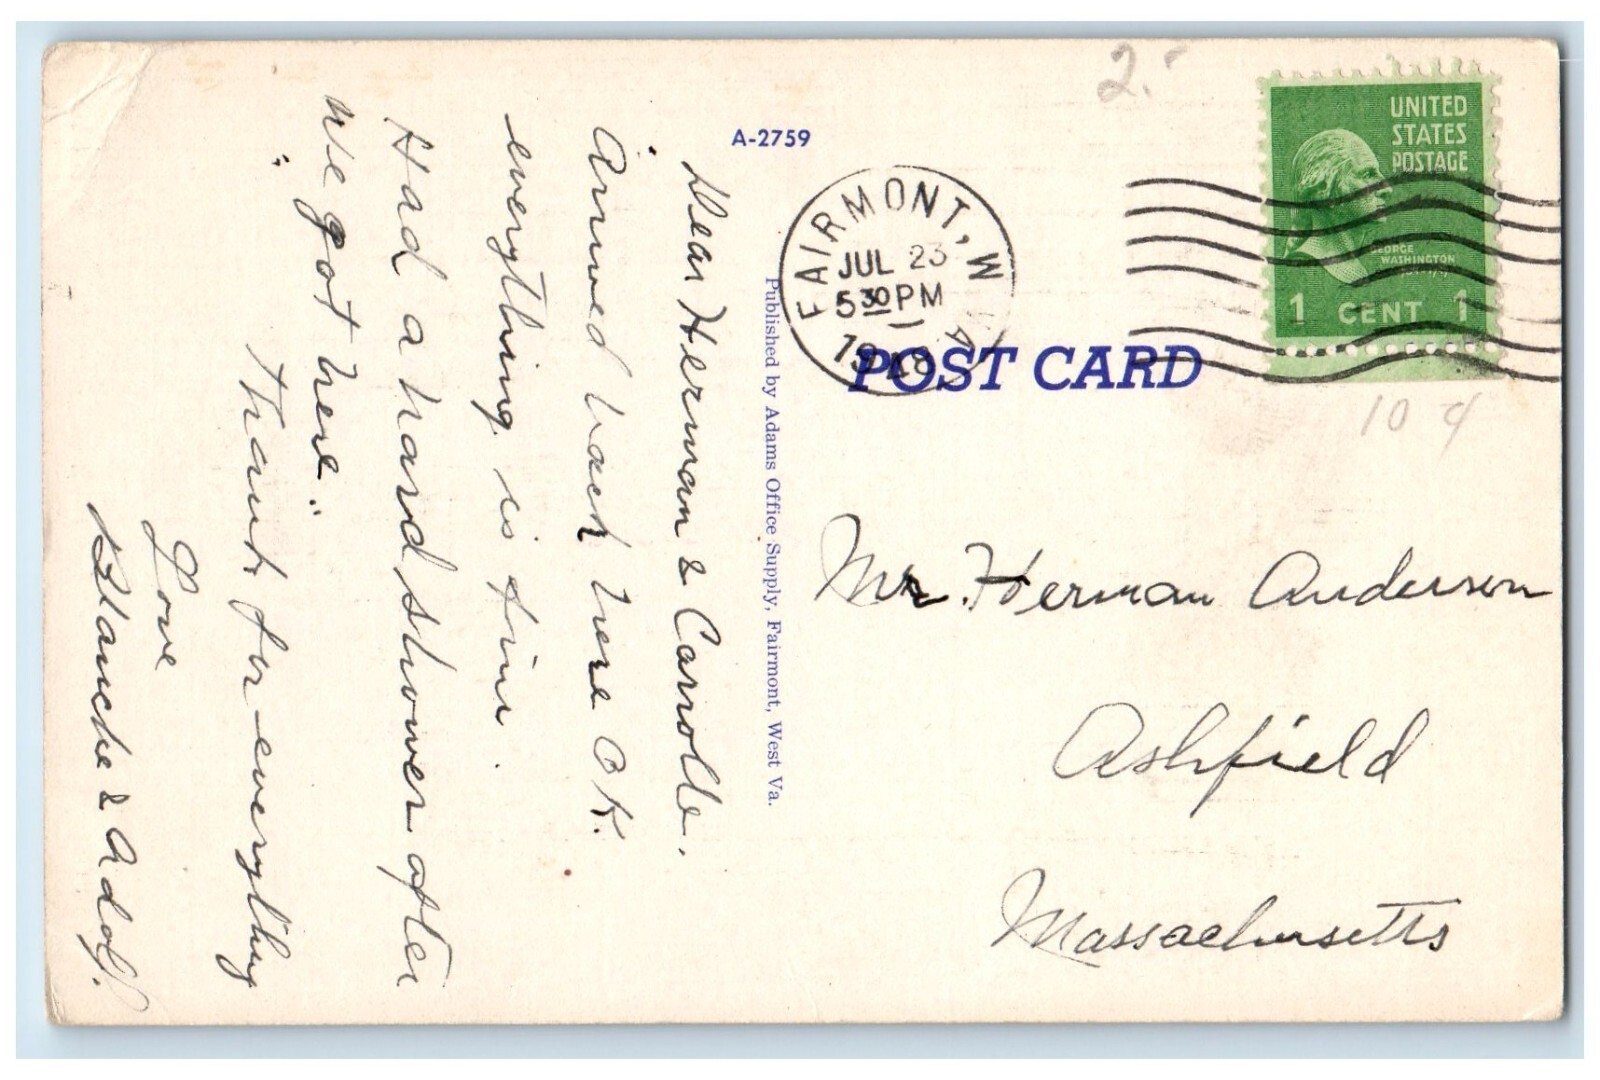 2.-
A-2759
UNITED
STATES
POSTAGE
GEORGE
WASHINGTON
1 CENT 1
FAIRMONT, W. VA.
JUL 23
5 30 PM
1948
POST CARD
10 ¢
Published by Adams Office Supply, Fairmont, West Va.
Dear Herman & Carrolle.
Arrived back here O K.
everything is fine.
Had a hard shower after
we got here.
Thank for everything
Love
Blanche & Adolf.
Mr. Herman Anderson
Ashfield
Massachusetts